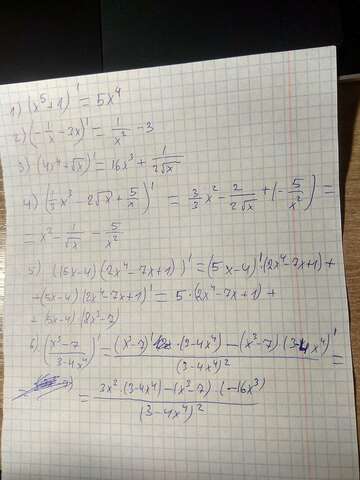 1) (x⁵+1)' = 5x⁴
2) (-1/x - 3x)' = 1/x² - 3
3) (4x⁴+√x)' = 16x³ + 1/(2√x)
4) (1/3 x³ - 2√x + 5/x)' = 3/3 x² - 2/(2√x) + (-5/x²) =
= x² - 1/√x - 5/x²
5) ((5x-4)(2x⁴-7x+1))' = (5x-4)'·(2x⁴-7x+1)+
+(5x-4)(2x⁴-7x+1)' = 5·(2x⁴-7x+1)+
+(5x-4)(8x³-7)
6) ((x³-7)/(3-4x⁴))' = ((x³-7)'·(3-4x⁴)-(x³-7)(3-4x⁴)')/(3-4x⁴)² =
= (3x²·(3-4x⁴)-(x³-7)·(-16x³))/(3-4x⁴)²